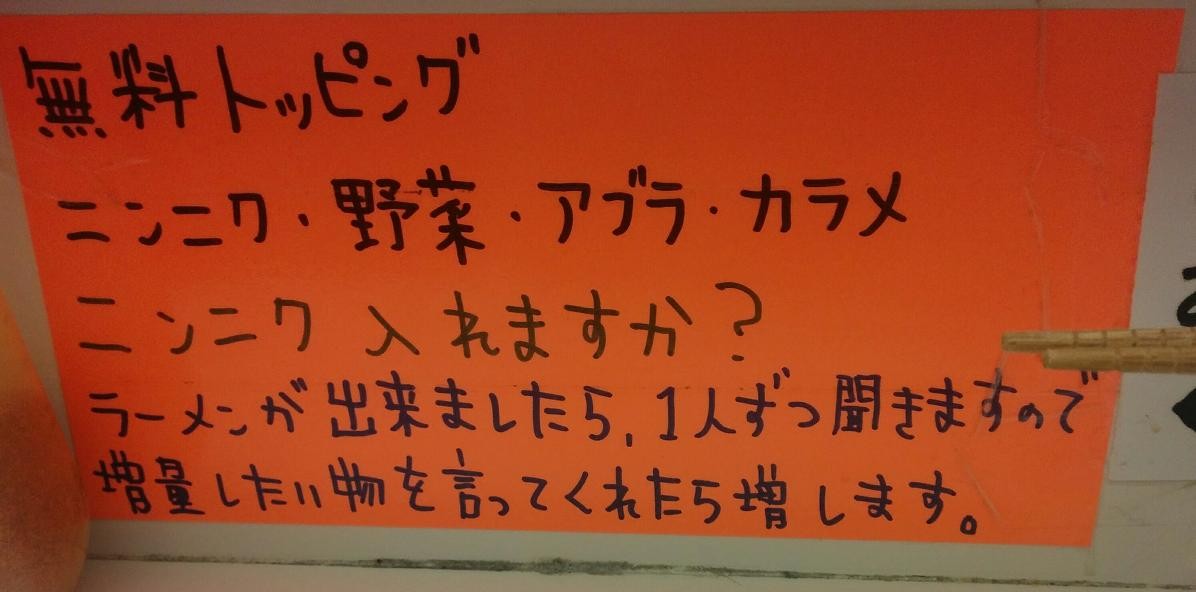 無料トッピング
ニンニク・野菜・アブラ・カラメ
ニンニク入れますか？
ラーメンが出来ましたら、1人ずつ聞きますので
増量したい物を言ってくれたら増します。